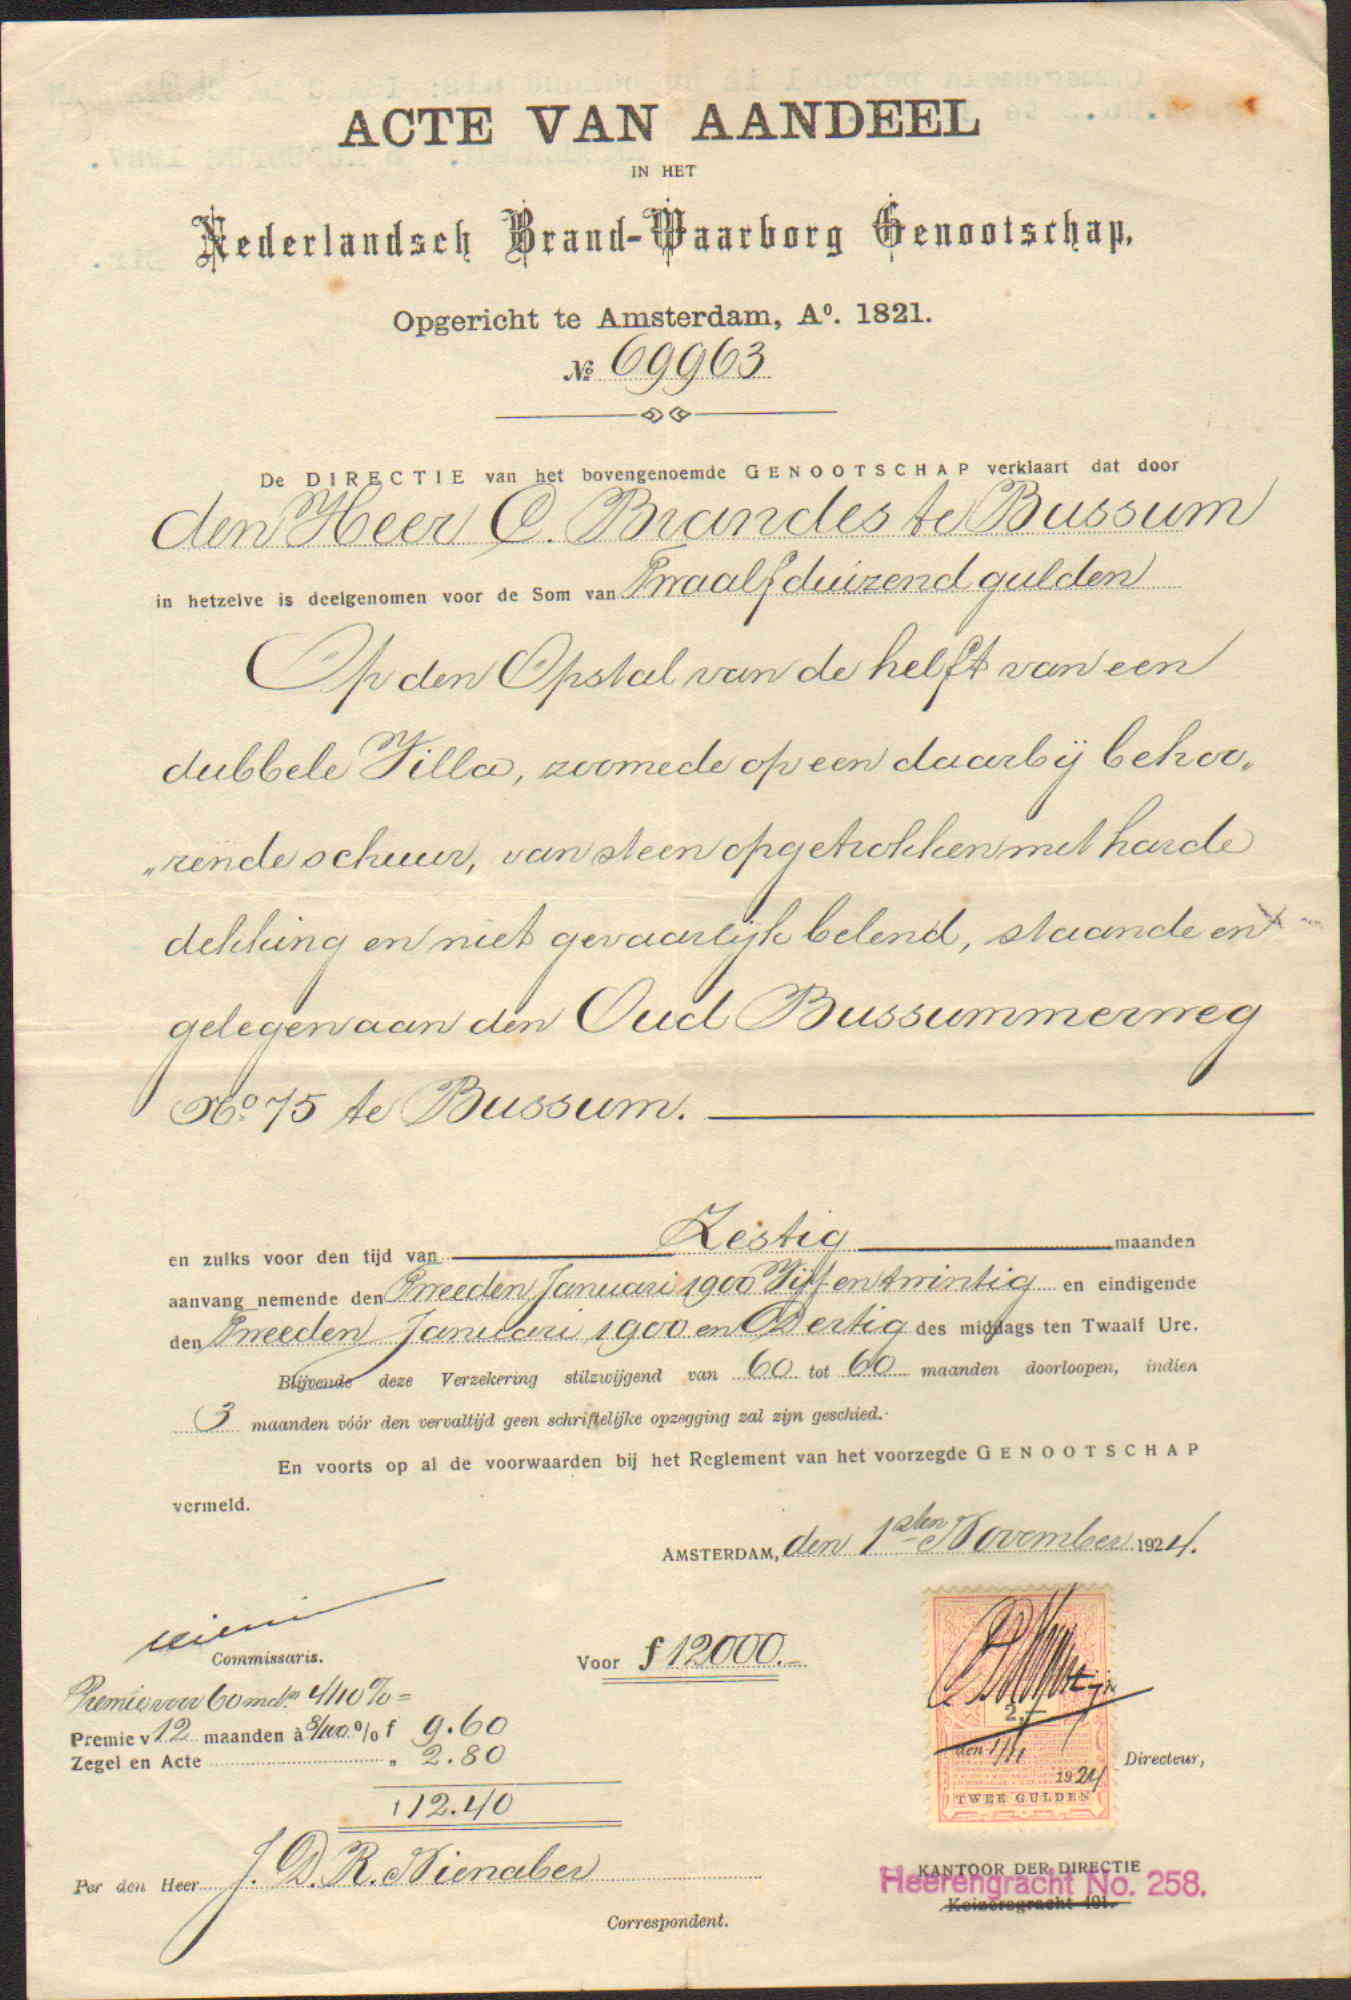 ACTE VAN AANDEEL
IN HET
Nederlandsch Brand-Waarborg Genootschap,
Opgericht te Amsterdam, Aº. 1821.
Nº 69963
De DIRECTIE van het bovengenoemde GENOOTSCHAP verklaart dat door
den Heer C. Brandes te Bussum
in hetzelve is deelgenomen voor de Som van Twaalfduizend gulden
Op den Opstal van de helft van een
dubbele Villa, zoomede op een daarbij behoo„
„rende schuur, van steen opgetrokken met harde
dekking en niet gevaarlijk belend, staande en
gelegen aan den Oud Bussummerweg
No. 75 te Bussum.
en zulks voor den tijd van Zestig maanden
aanvang nemende den Tweeden Januari 1900 Vijf en twintig en eindigende
den Tweeden Januari 1900 en Dertig des middags ten Twaalf Ure.
Blijvende deze Verzekering stilzwijgend van 60 tot 60 maanden doorloopen, indien
3 maanden vóór den vervaltijd geen schriftelijke opzegging zal zijn geschied.
En voorts op al de voorwaarden bij het Reglement van het voorzegde GENOOTSCHAP
vermeld.
AMSTERDAM, den 1sten November 1924.
Commissaris.
Voor f 12000.-
Premie voor 60 mdn 4/10 % =
Premie v 12 maanden à 8/100 % f 9.60
Zegel en Acte „ 2.80
f 12.40
2.-
den 1/11
1924
TWEE GULDEN
Directeur,
Per den Heer J. D. R. Nienaber
Correspondent.
KANTOOR DER DIRECTIE
Heerengracht No. 258.
Keizersgracht 401.